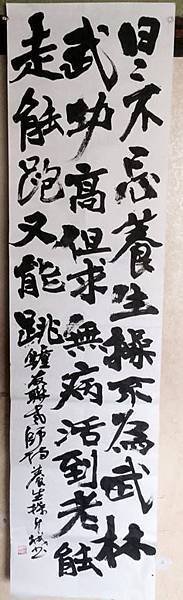 日日不忘養生操不為武林
武功高但求無病活到老能
走能跑又能跳